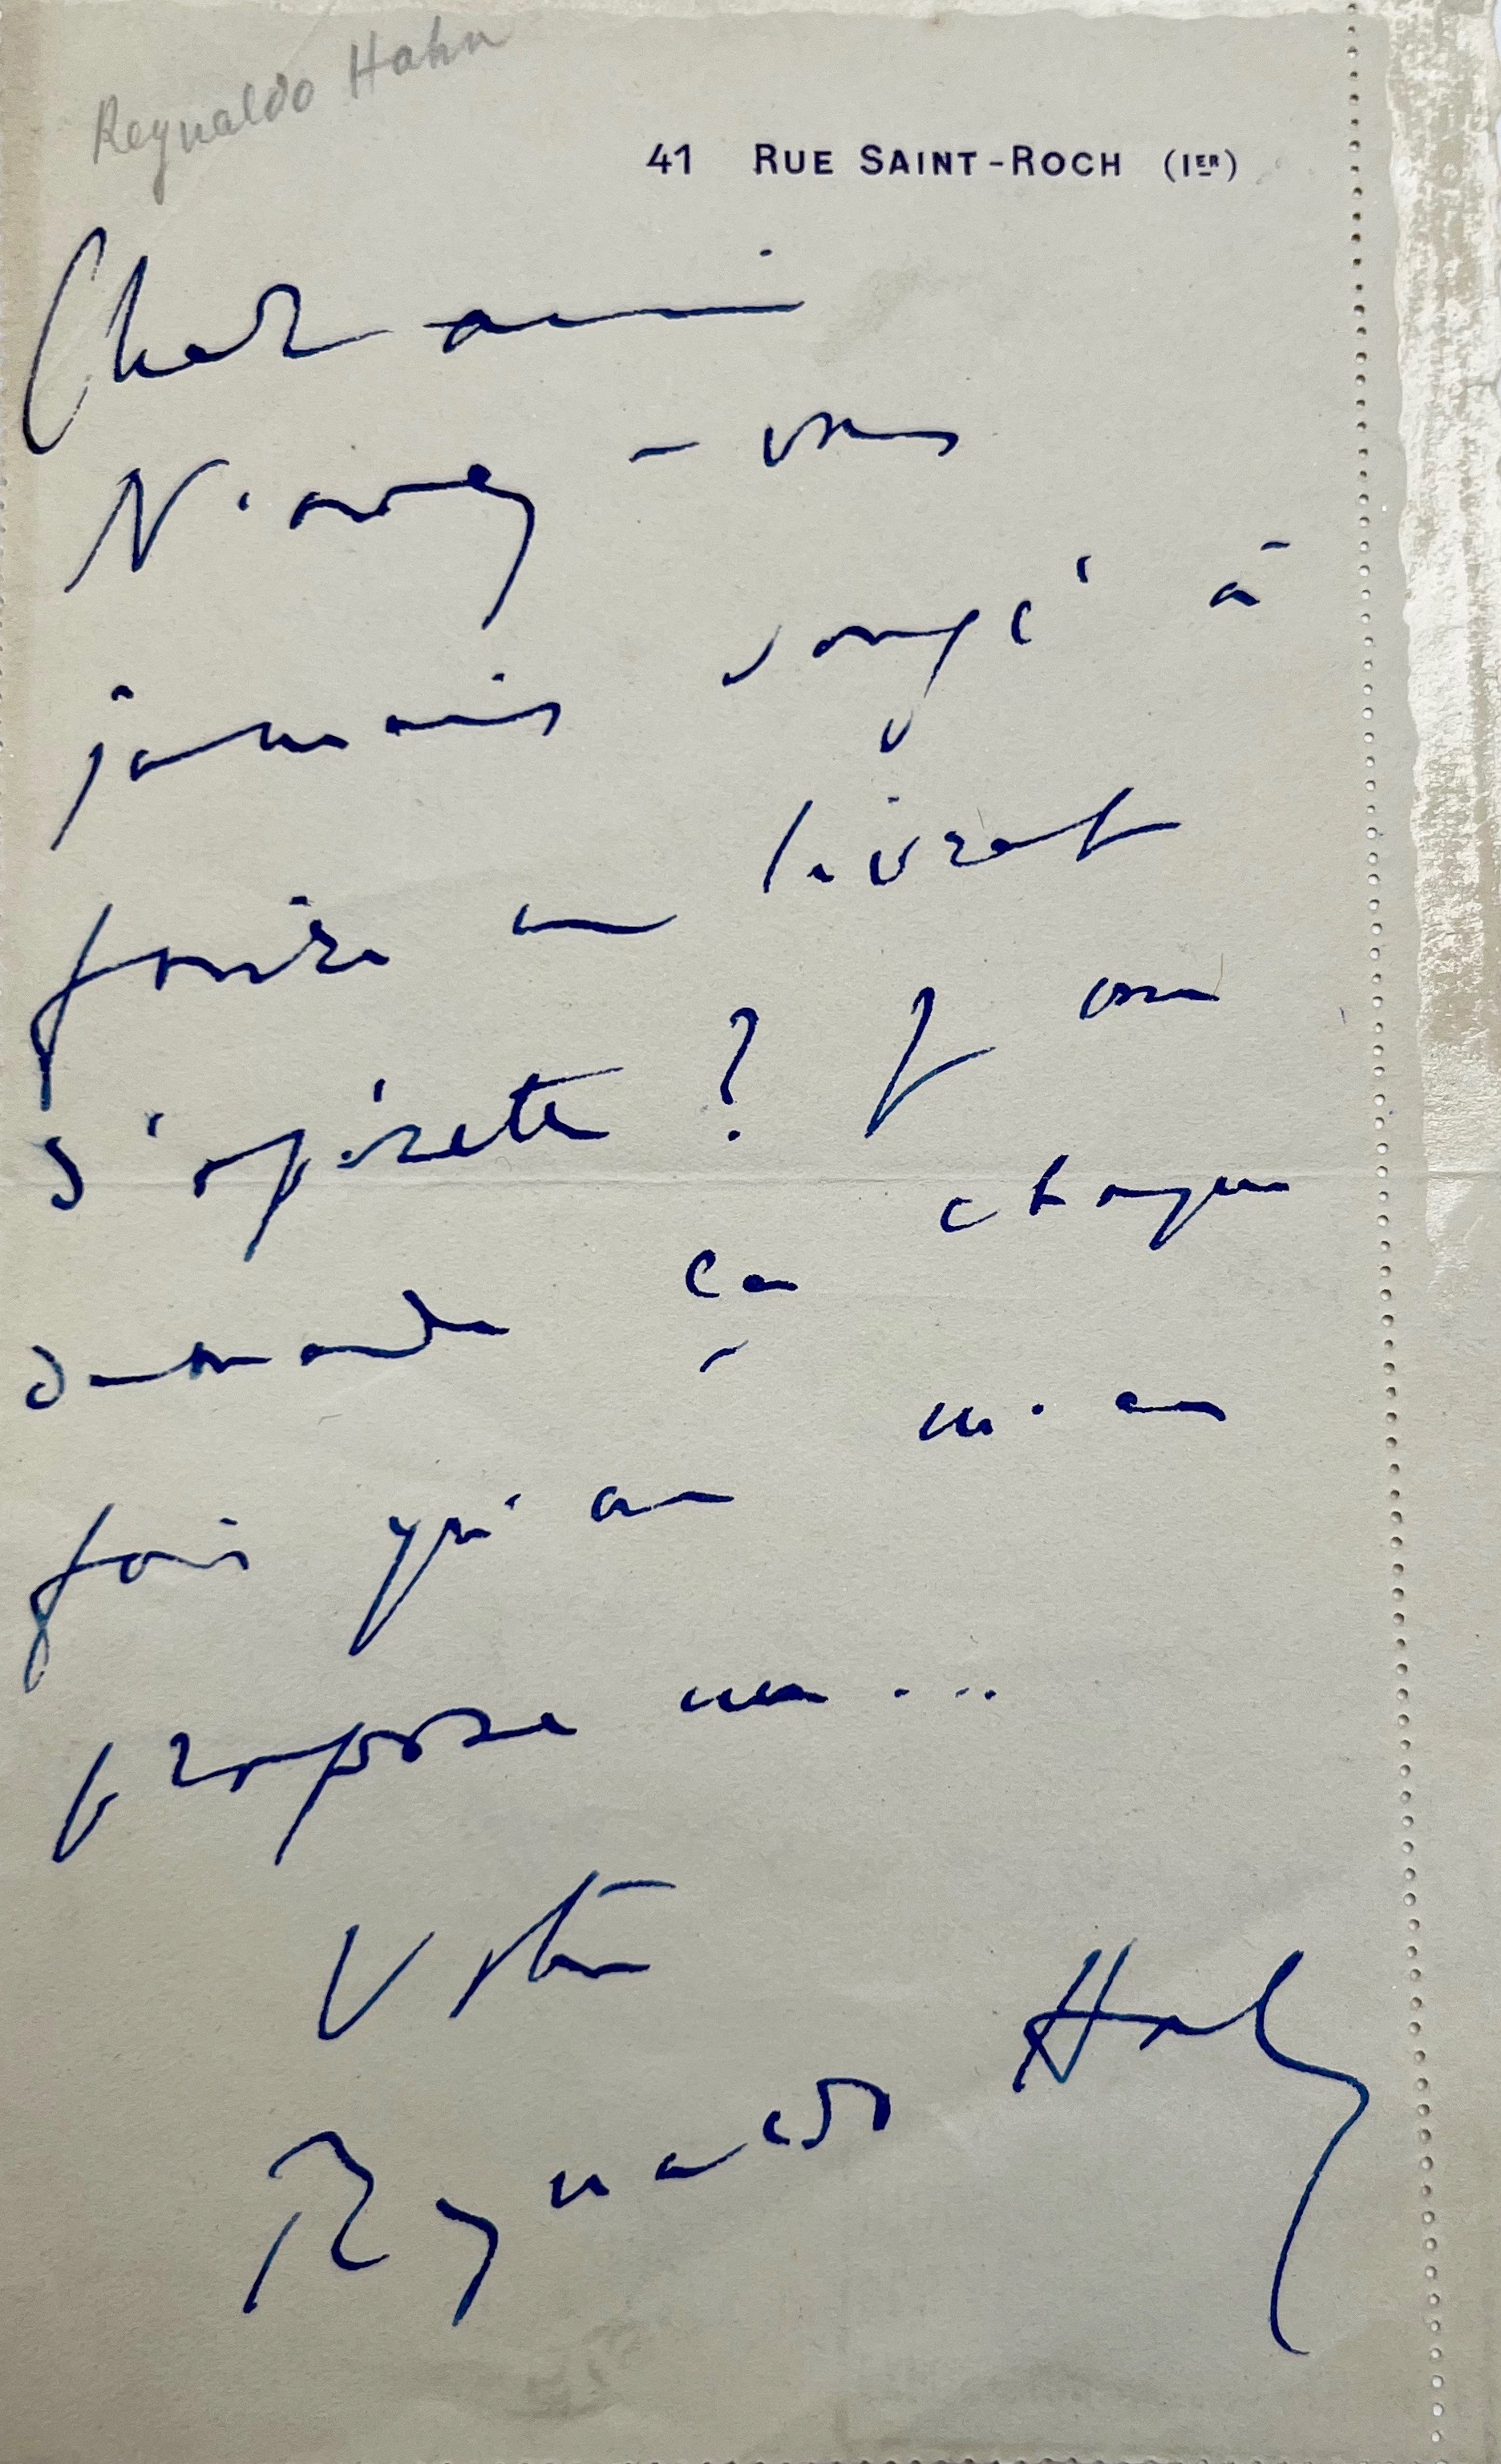 Reynaldo Hahn
41 RUE SAINT-ROCH (IER)
Cher ami
N'avez-vous
jamais songé à
faire un livret
d'opérette ? Je vous
demande ça chaque
fois qu'on m'en
propose un...
Votre
Reynaldo Hahn